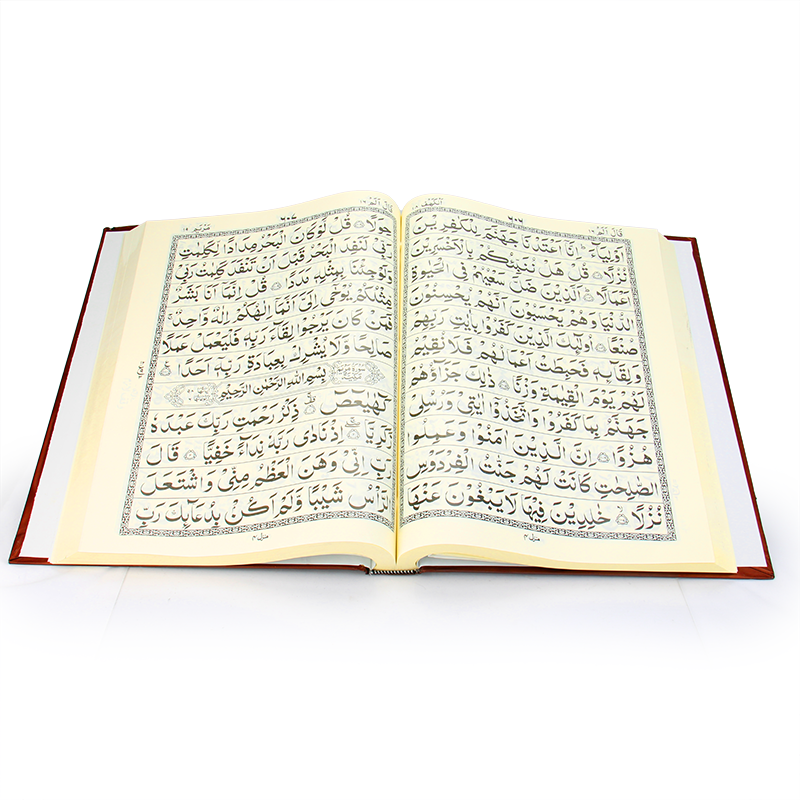 قَالَ اَلَمْ ١٦
٦٠٦
اَلْكَهْف
اَوْلِيَآءَ ؕ اِنَّاۤ اَعْتَدْنَا جَهَنَّمَ لِلْكٰفِرِيْنَ
نُزُلًا قُلْ هَلْ نُنَبِّئُكُمْ بِالْاَخْسَرِيْنَ
اَعْمَالًا اَلَّذِيْنَ ضَلَّ سَعْيُهُمْ فِى الْحَيٰوةِ
الدُّنْيَا وَهُمْ يَحْسَبُوْنَ اَنَّهُمْ يُحْسِنُوْنَ
صُنْعًا اُولٰٓئِكَ الَّذِيْنَ كَفَرُوْا بِاٰيٰتِ رَبِّهِمْ
وَلِقَآئِهٖ فَحَبِطَتْ اَعْمَالُهُمْ فَلَا نُقِيْمُ
لَهُمْ يَوْمَ الْقِيٰمَةِ وَزْنًا ذٰلِكَ جَزَآؤُهُمْ
جَهَنَّمُ بِمَا كَفَرُوْا وَاتَّخَذُوْۤا اٰيٰتِىْ وَرُسُلِىْ
هُزُوًا اِنَّ الَّذِيْنَ اٰمَنُوْا وَعَمِلُوا
الصّٰلِحٰتِ كَانَتْ لَهُمْ جَنّٰتُ الْفِرْدَوْسِ
نُزُلًا خٰلِدِيْنَ فِيْهَا لَا يَبْغُوْنَ عَنْهَا
منزل ٤
قَالَ اَلَمْ ١٦
٦٠٧
مَرْيَم ١٩
حِوَلًا قُلْ لَّوْ كَانَ الْبَحْرُ مِدَادًا لِّكَلِمٰتِ
رَبِّىْ لَنَفِدَ الْبَحْرُ قَبْلَ اَنْ تَنْفَدَ كَلِمٰتُ رَبِّىْ
وَلَوْ جِئْنَا بِمِثْلِهٖ مَدَدًا قُلْ اِنَّمَاۤ اَنَا بَشَرٌ
مِّثْلُكُمْ يُوْحٰۤى اِلَىَّ اَنَّمَاۤ اِلٰهُكُمْ اِلٰهٌ وَّاحِدٌ
فَمَنْ كَانَ يَرْجُوْا لِقَآءَ رَبِّهٖ فَلْيَعْمَلْ عَمَلًا
صَالِحًا وَّلَا يُشْرِكْ بِعِبَادَةِ رَبِّهٖۤ اَحَدًا
بِسْمِ اللهِ الرَّحْمٰنِ الرَّحِيْمِ
كٓهٰيٰعٓصٓ ذِكْرُ رَحْمَتِ رَبِّكَ عَبْدَهٗ
زَكَرِيَّا اِذْ نَادٰى رَبَّهٗ نِدَآءً خَفِيًّا قَالَ
رَبِّ اِنِّىْ وَهَنَ الْعَظْمُ مِنِّىْ وَاشْتَعَلَ
الرَّاْسُ شَيْبًا وَّلَمْ اَكُنْۢ بِدُعَآئِكَ رَبِّ
منزل ٤